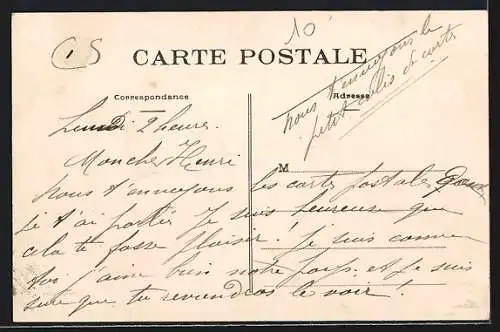 10
CS
CARTE POSTALE
Correspondance
Adresse
nous t'envoyons le
petit colis et carte
Lundi 2 heures.
Mon cher Henri
M
nous t'envoyons les cartes postales
je t'ai parlé, je suis heureuse que
cela te fasse plaisir! je suis comme
toi j'aime bien notre pays et je suis
sure que tu reviendras le voir!